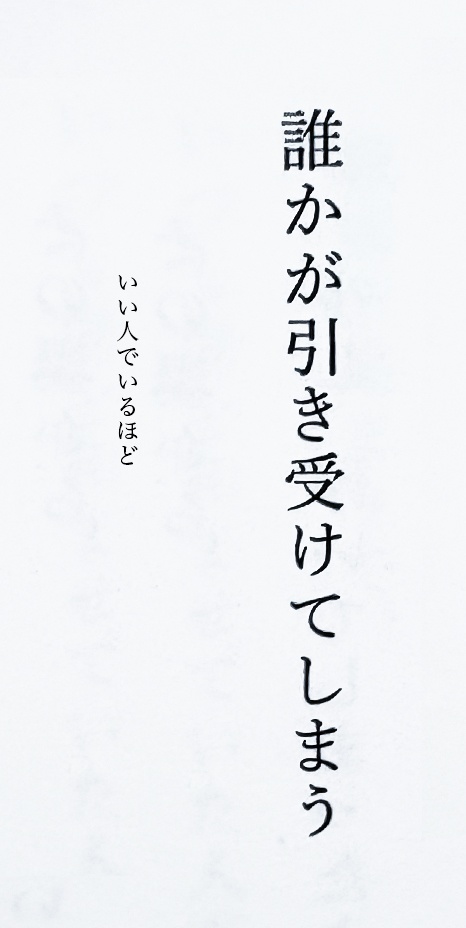 誰かが引き受けてしまう
いい人でいるほど